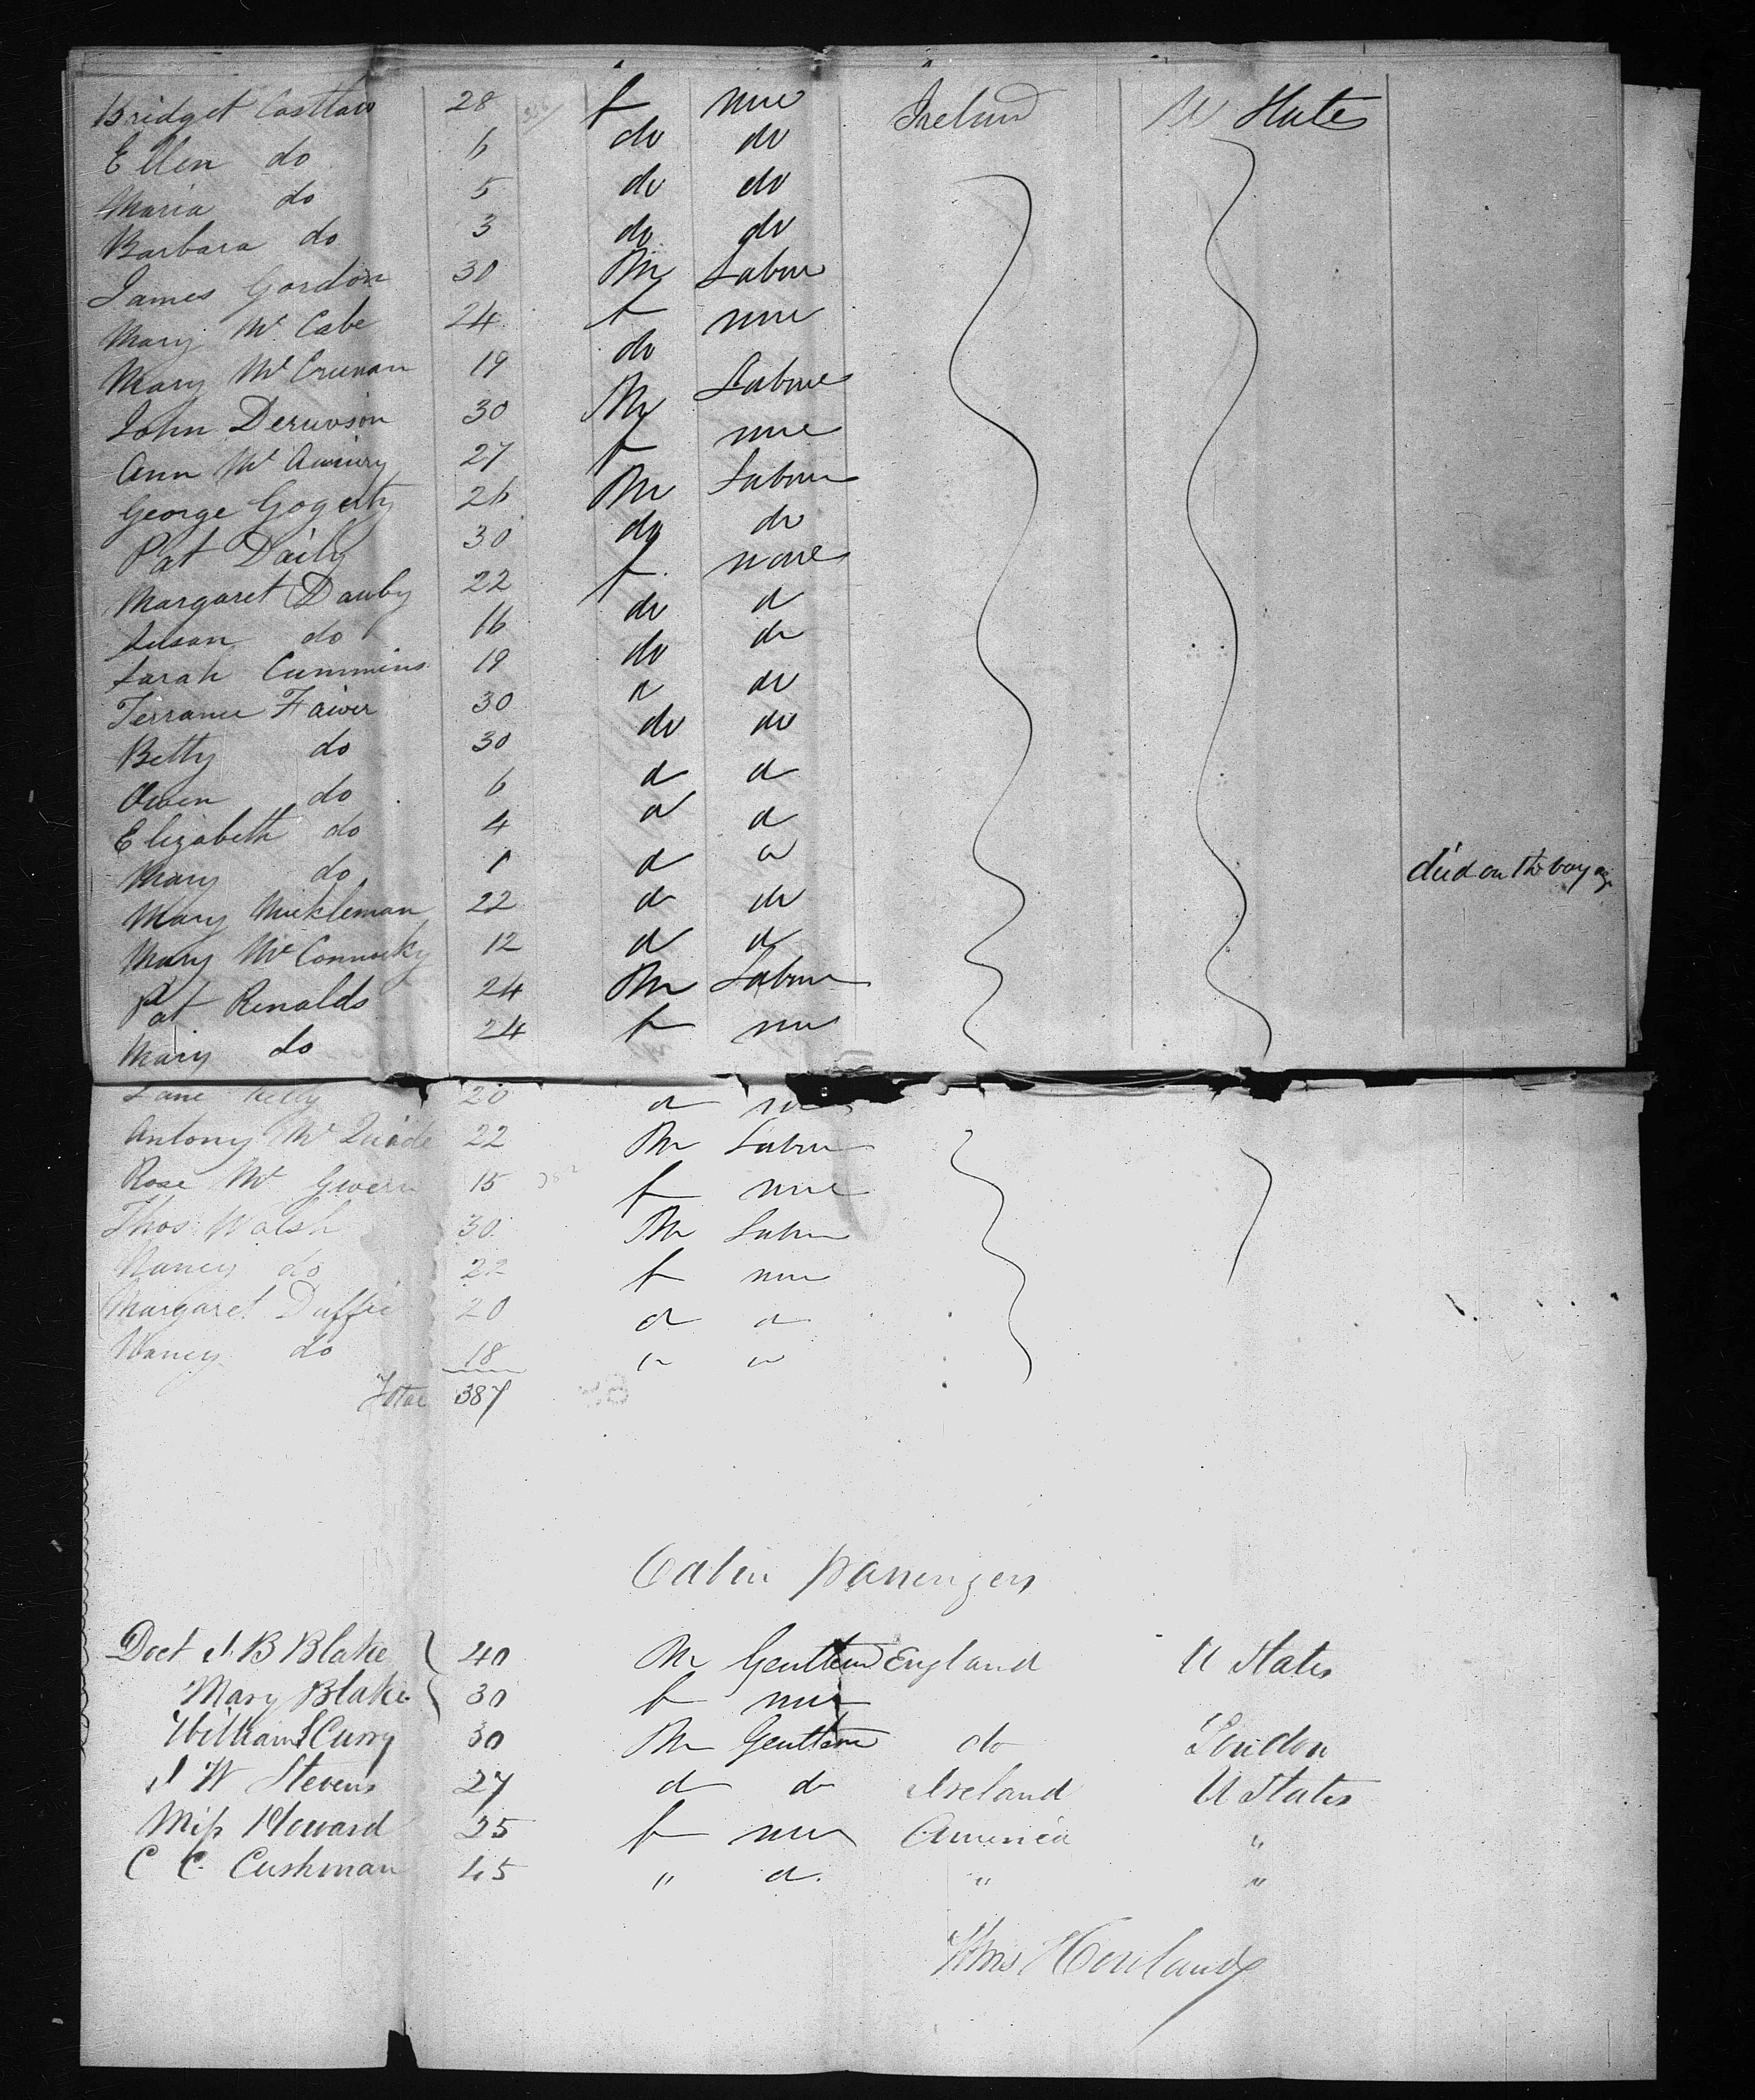 Bridget 28 f none Ireland U States
Ellen do 6 do do
Maria do 5 do do
Barbara do 3 do do
James Gordon 30 M Labour
Mary Mc Cabe 24 f none
Mary Mc Crunan 19 do
John 30 M Labour
Ann Mc 27 f none
George Gogerty 26 M Labour
Pat Daily 30 do do
Margaret Dauby 22 f. none
Susan do 16 do d
Sarah Cummins 19 do do
Terrance 30 d do
Betty do 30 do do
Owen do 6 d d
Elizabeth do 4 d d
Mary do 1 d d died on the voyage
Mary Muckleman 22 d do
Mary Mc 12 d d
Pat Renalds 24 M Labour
Mary do 24 f none
Jane Kelly 20 d
Antony Mc Quade 22 M Labour
Rose Mc Gwern 15 f none
Thos Walsh 30 M Labour
Nancy do 22 f none
Margaret Duffie 20 d d
Nancy do 18 d d
Total 387
Cabin Passengers
Doct J. B Blake 40 M Gentlem England U States
Mary Blake 30 f none
William S Curry 30 M Gentlem do London
J W Stevens 27 d do Ireland U States
Miss Howard 25 f none America "
C C. Cushman 45 " d. " "
Howland